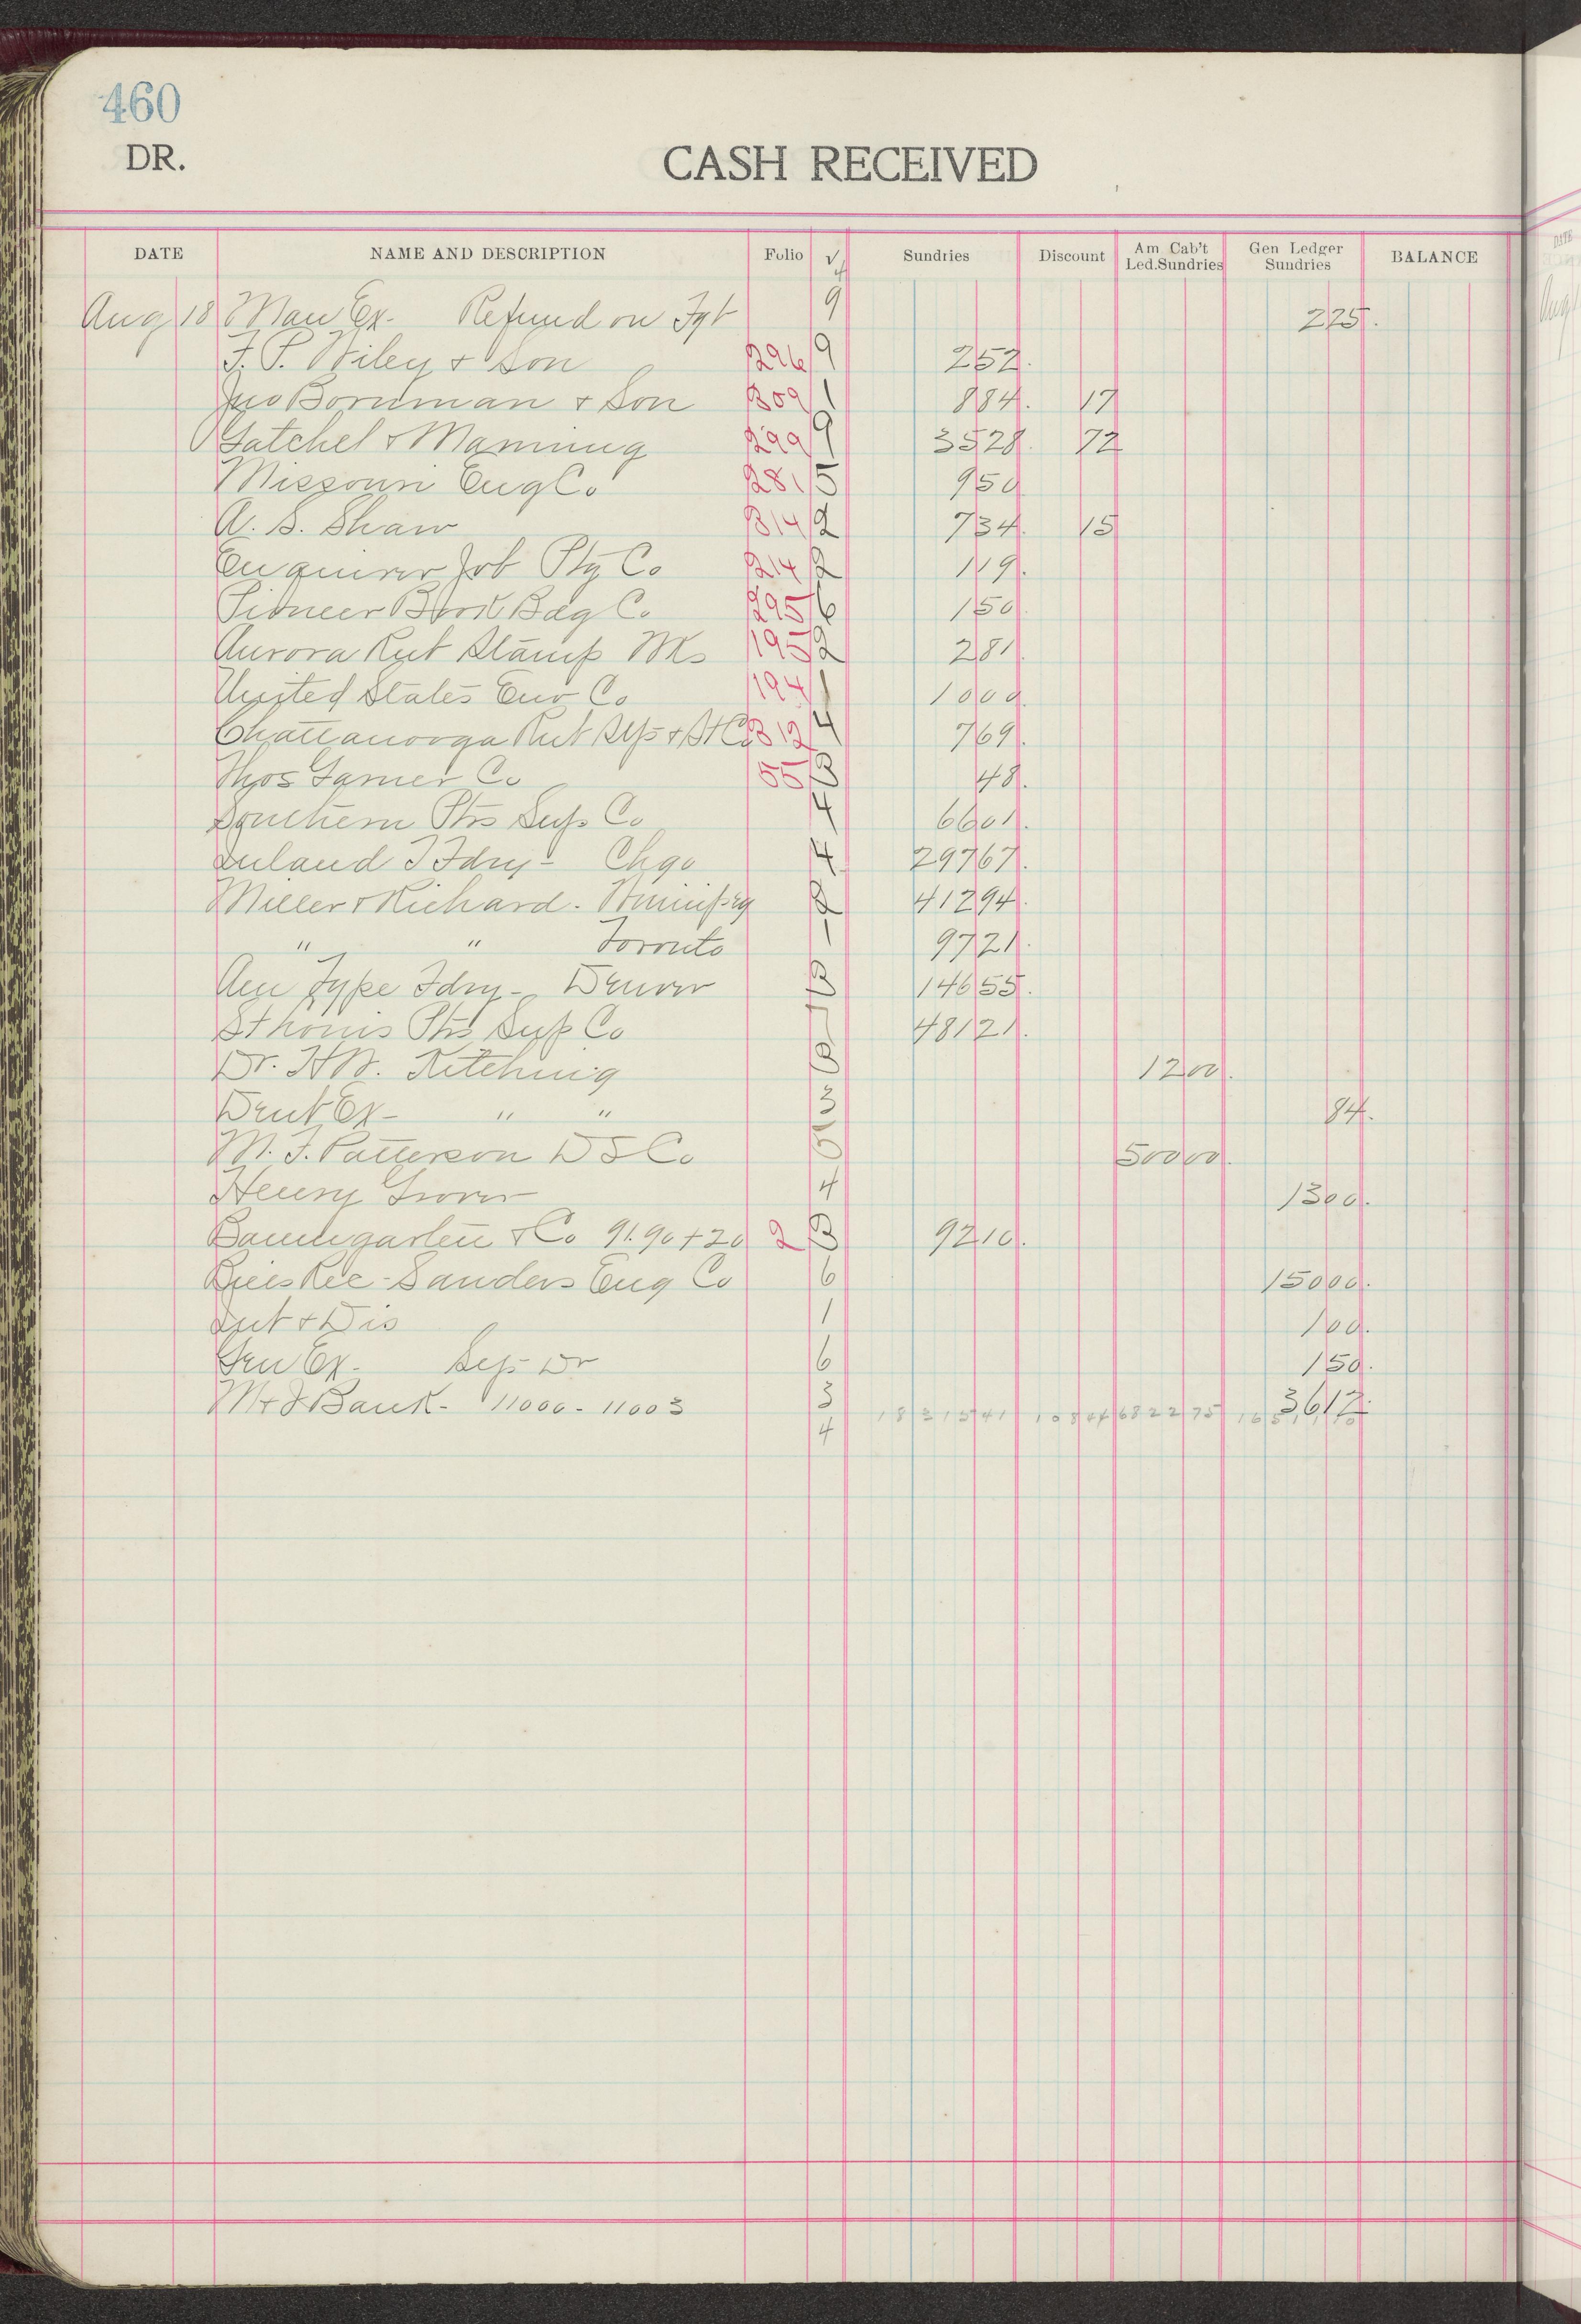 460
DR.
CASH RECEIVED
DATE NAME AND DESCRIPTION Folio √ Sundries Discount Am Cab't Led.Sundries Gen Ledger Sundries BALANCE
4
Aug 18 Man Ex- Refund on Fgt 9 225.
F. P. Wiley & Son 296 9 252.
Jno Bornman & Son 309 1 884. 17
Gatchel & Manning 299 9 3528. 72
Missouri Eng Co 281 5 950
A. S. Shaw 314 2 734. 15
Enquirer Job Ptg Co 214 2 119.
Pioneer Book Bdg Co 295 6 150
Aurora Rub Stamp Wks 195 2 281
United States Env Co 194 1 1000
Chattanooga Rub Stp & St Co 312 4 769.
Thos Garner Co 55 3 48.
Southern Ptrs Sup Co 4 6601.
Inland T Fdry - Chgo 4 29767.
Miller & Richard - Winnipeg 41294.
" " Toronto 9721.
Am Type Fdry - Denver 3 14655.
St Louis Ptrs Sup Co 48121.
Dr. H W. Kitching 1200.
Dent Ex - " " 3 84.
M. F. Patterson D S Co 5 50000.
Henry Grover 4 1300.
Baumgarten & Co 91.90 + 20 2 3 9210.
Bills Rec - Sanders Eng Co 6 15000.
Int & Dis 1 100.
Gen Ex - 6 150.
M & I Bank - 11000 - 11003 3 3612.
4 1831541 10844 682275